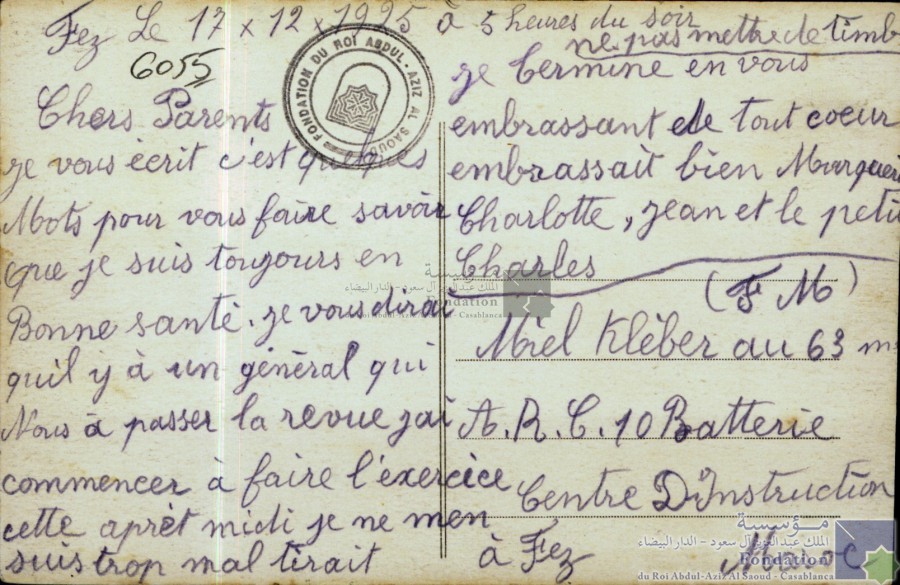 Fez Le 17 x 12 x 1925 à 5 heures du soir
ne pas mettre de timb
6055
FONDATION DU ROI ABDUL-AZIZ AL SAOUD
Chers Parents
je vous écrit c'est quelques
Mots pour vous faire savoir
que je suis toujours en
Bonne santé. je vous dirai
quil y à un général qui
Nous à passer la revue jai
commencer à faire l'éxercice
cette aprèt midi je ne men
suis trop mal tirait
je termine en vous
embrassant de tout coeur
embrassait bien Margueri
Charlotte, jean et le petit
Charles
(F M)
Miel Kléber au 63 m
A.R.C. 10 Batterie
Centre D'Instruction
à Fez
Maroc
مؤسسة
الملك عبد العزيز آل سعود - الدار البيضاء
Fondation
du Roi Abdul-Aziz Al Saoud - Casablanca
مؤسسة
الملك عبد العزيز آل سعود - الدار البيضاء
Fondation
du Roi Abdul-Aziz Al Saoud - Casablanca